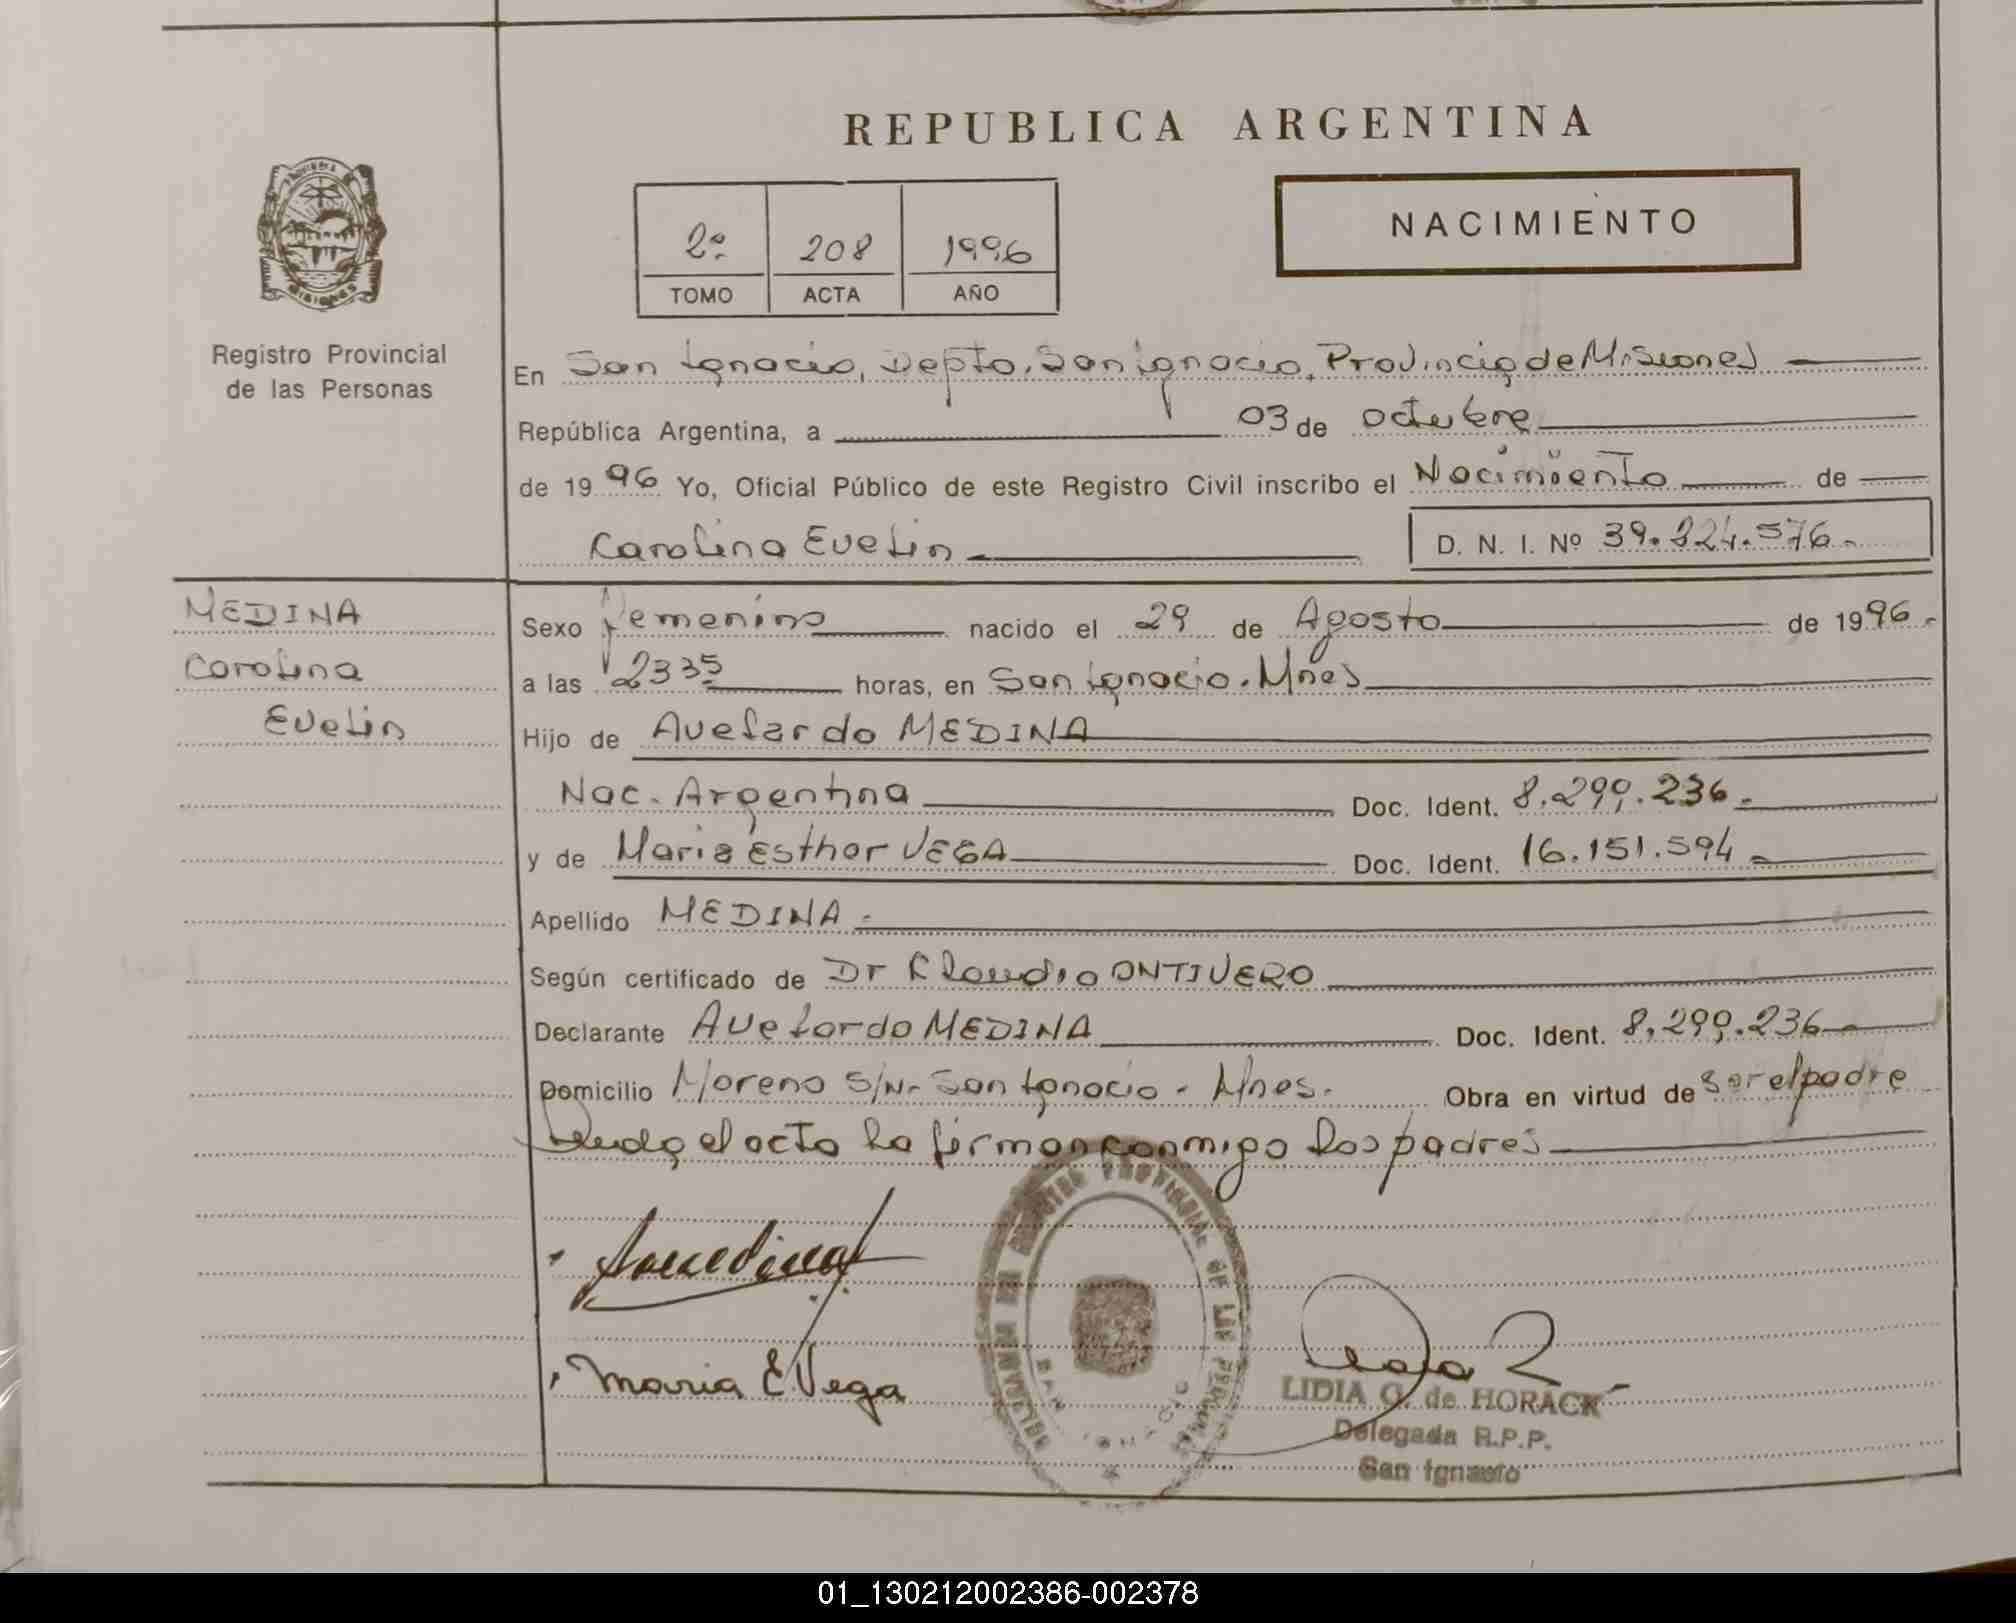 REPUBLICA ARGENTINA
2º 208 1996
TOMO ACTA AÑO
NACIMIENTO
Registro Provincial
de las Personas
En San Ignacio, Depto. San Ignacio, Provincia de Misiones
República Argentina, a 03 de octubre
de 1996 Yo, Oficial Público de este Registro Civil inscribo el Nacimiento de
Carolina Evelin D. N. I. Nº 39.224.576.-
MEDINA
Carolina
Evelin
Sexo femenino nacido el 29 de Agosto de 1996.
a las 23 35 horas, en San Ignacio. Mnes
Hijo de Avelardo MEDINA
Nac. Argentina Doc. Ident. 8.299.236.-
y de Maria Esther VEGA Doc. Ident. 16.151.594.-
Apellido MEDINA.-
Según certificado de Dr Klaudio ONTIVERO
Declarante Avelardo MEDINA Doc. Ident. 8.299.236.-
Domicilio Moreno S/N- San Ignacio - Mnes. Obra en virtud de ser el padre
Leida el acta la firman conmigo los padres
Maria E. Vega
REGISTRO PROVINCIAL DE LAS
SAN IGNACIO
LIDIA G. de HORACK
Delegada R.P.P.
San Ignacio
01_130212002386-002378